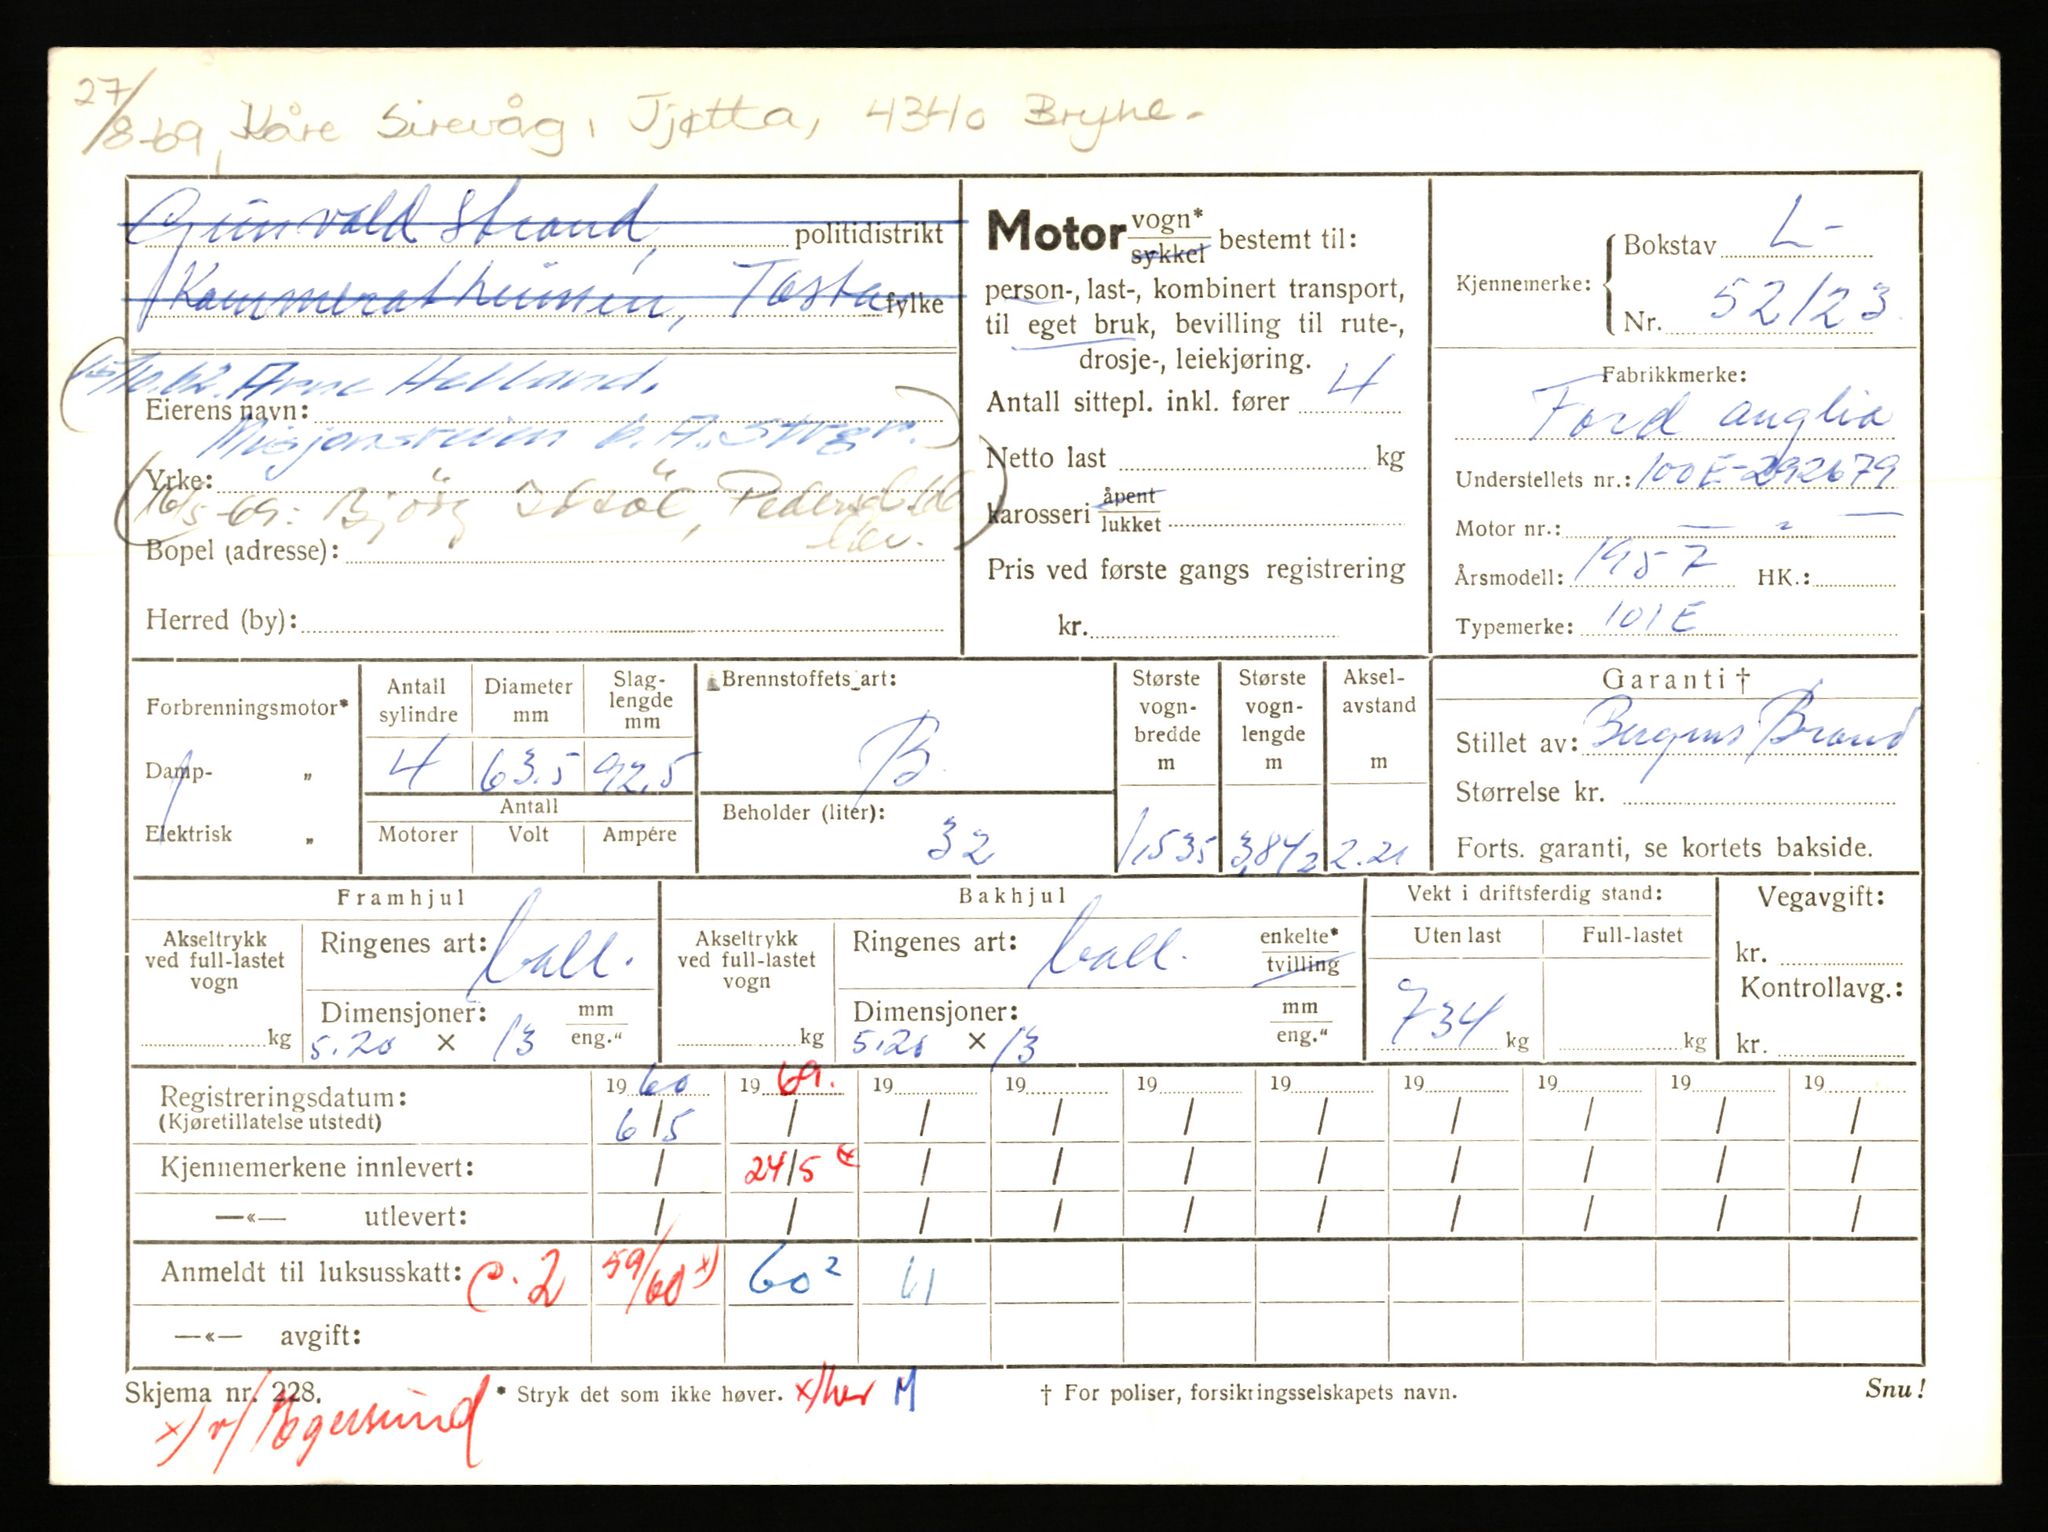 27/8-69, Kåre Sirevåg, Tjøtta, 4340 Bryne.
Gunvald Strand, politidistrikt
Kammeratheimen, Tasta fylke
/10.62. Arne Helland.
Eierens navn:
Misjonsheim
Yrke:
16/5-69: Bjørg
Bopel (adresse):
Herred (by):
Motor vogn* sykkel bestemt til:
person-, last-, kombinert transport,
til eget bruk, bevilling til rute-,
drosje-, leiekjøring.
Antall sittepl. inkl. fører 4
Netto last kg
karosseri åpent lukket
Pris ved første gangs registrering
kr.
Kjennemerke: Bokstav L-
Nr. 52123
Fabrikkmerke:
Ford anglia
Understellets nr.: 100E-292679
Motor nr.: — " —
Årsmodell: 1957 HK.:
Typemerke: 101E
Forbrenningsmotor*
Damp- „
Elektrisk „
Antall sylindre 4
Diameter mm 63.5
Slaglengde mm 92,5
Antall
Motorer Volt Ampére
Brennstoffets art:
B
Beholder (liter):
32
Største vognbredde m 1,535
Største vognlengde m 3,842
Akselavstand m 2.21
Garanti †
Stillet av: Bergens Brand
Størrelse kr.
Forts. garanti, se kortets bakside.
Framhjul
Akseltrykk ved full-lastet vogn
kg
Ringenes art: ball.
Dimensjoner: mm eng."
5.20 × 13
Bakhjul
Akseltrykk ved full-lastet vogn
kg
Ringenes art: ball. enkelte* tvilling
Dimensjoner: mm eng."
5.20 × 13
Vekt i driftsferdig stand:
Uten last Full-lastet
734 kg kg
Vegavgift:
kr.
Kontrollavg.:
kr.
Registreringsdatum: 1960 1969. 19 19 19 19 19 19 19 19
(Kjøretillatelse utstedt) 6/5 / / / / / / / / /
Kjennemerkene innlevert: / 24/5 (x / / / / / / / /
—«— utlevert: / / / / / / / / / /
Anmeldt til luksusskatt: C.2 59/60 x) 60² 61
—«— avgift:
Skjema nr. 228. * Stryk det som ikke høver. x/her M † For poliser, forsikringsselskapets navn. Snu!
x) v/ Egersund